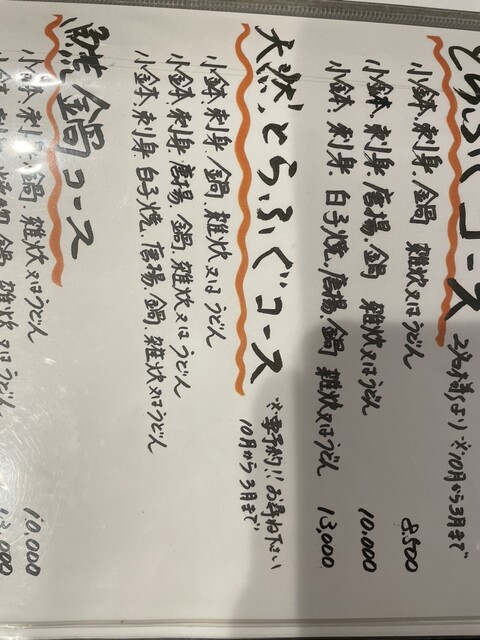 とらふぐコース 2名様より ※10月から3月まで
小鉢、刺身、鍋 雑炊又はうどん 8.500
小鉢、刺身、唐揚、鍋 雑炊又はうどん 10.000
小鉢、刺身、白子焼、唐揚、鍋 雑炊又はうどん 13,000
天然とらふぐコース ※要予約!! お尋ね下さい
10月から3月まで
小鉢、刺身、鍋、雑炊又はうどん
小鉢、刺身、唐揚、鍋、雑炊又はうどん
小鉢、刺身、白子焼、唐揚、鍋、雑炊又はうどん
鍋コース
小鉢、刺身、鍋 雑炊又はうどん 10,000
鍋 雑炊又はうどん